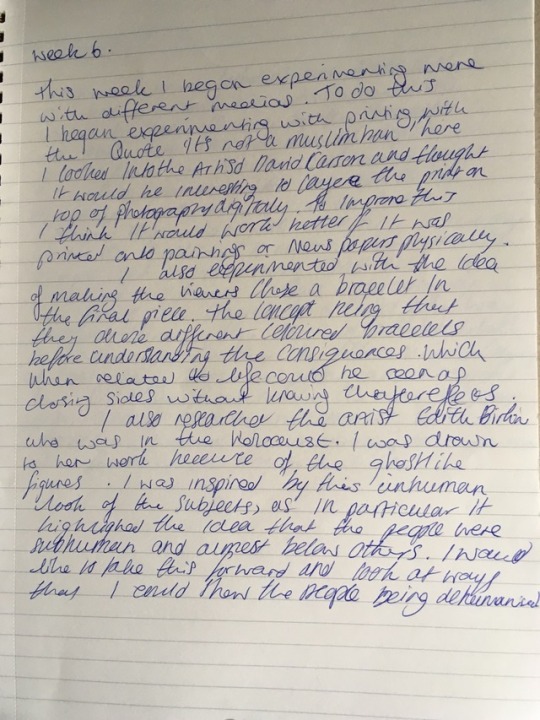 week 6.
This week I began experimenting more
with different medias. To do this
I began experimenting with printing with
the Quote 'It's not a muslim ban', here
I looked into the Artisd David Carson and thought
it would be interesting to layere the print on
top of photography digitaly. To improve this
I think it would work better if it was
printed onto paintings or News papers physically.
I also experimented with the idea
of making the viewers chose a bracelet in
the final piece. The concept being that
they chose different coloured bracelets
before understanding the consiquences. Which
when related to life could be seen as
chosing sides without knowing the
I also researched the artist Edith Birkin
who was in the Holocaust. I was drawn
to her work because of the ghostlike
figures. I was inspired by this unhuman
look of the subjects, as in particular it
highlighed the idea that the people were
subhuman and almost below others. I would
like to take this forward and look at ways
that I could show the people being dehumanised